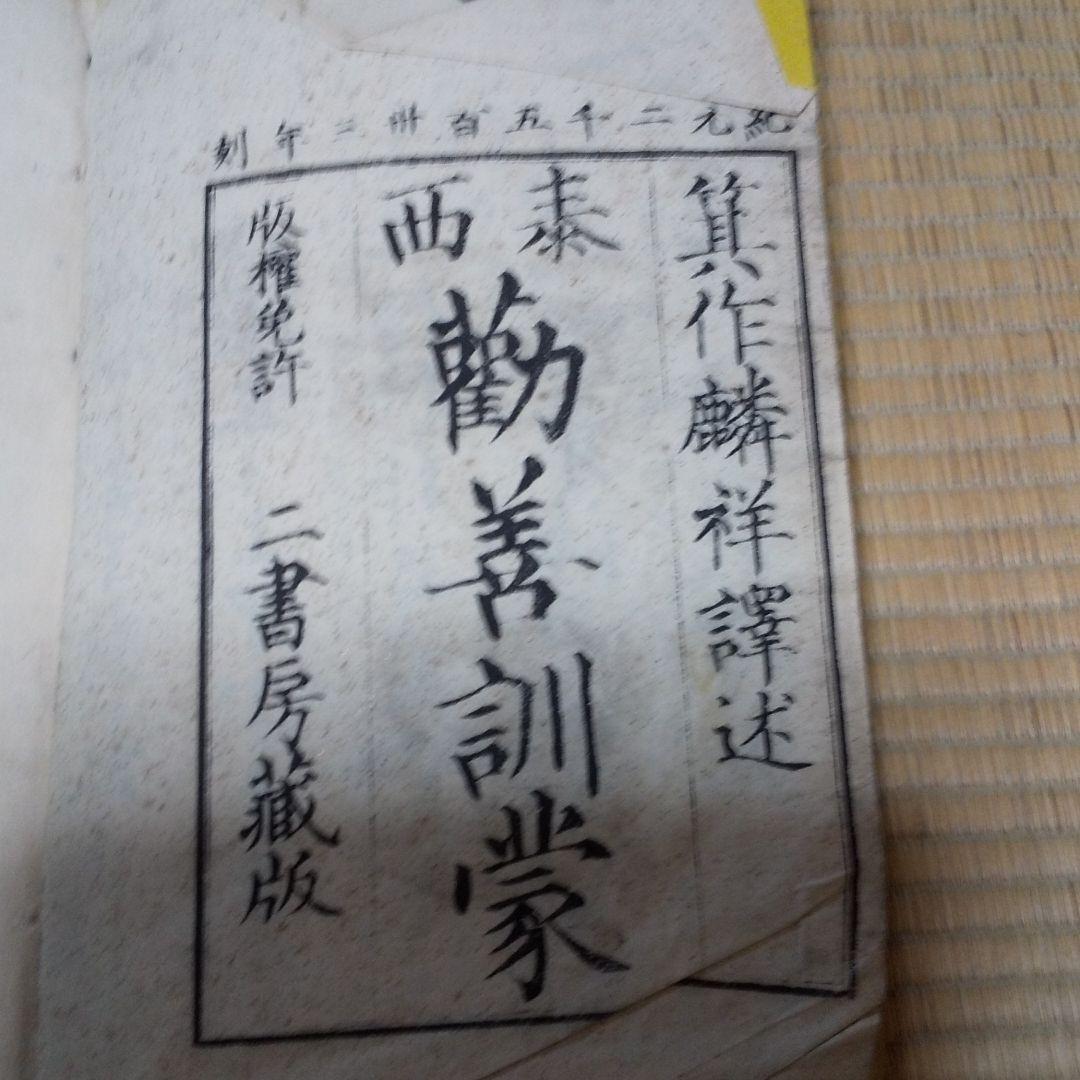 紀元二千五百卅三年刻
箕作麟祥譯述
泰西
勸善訓蒙
版權免許 二書房藏版